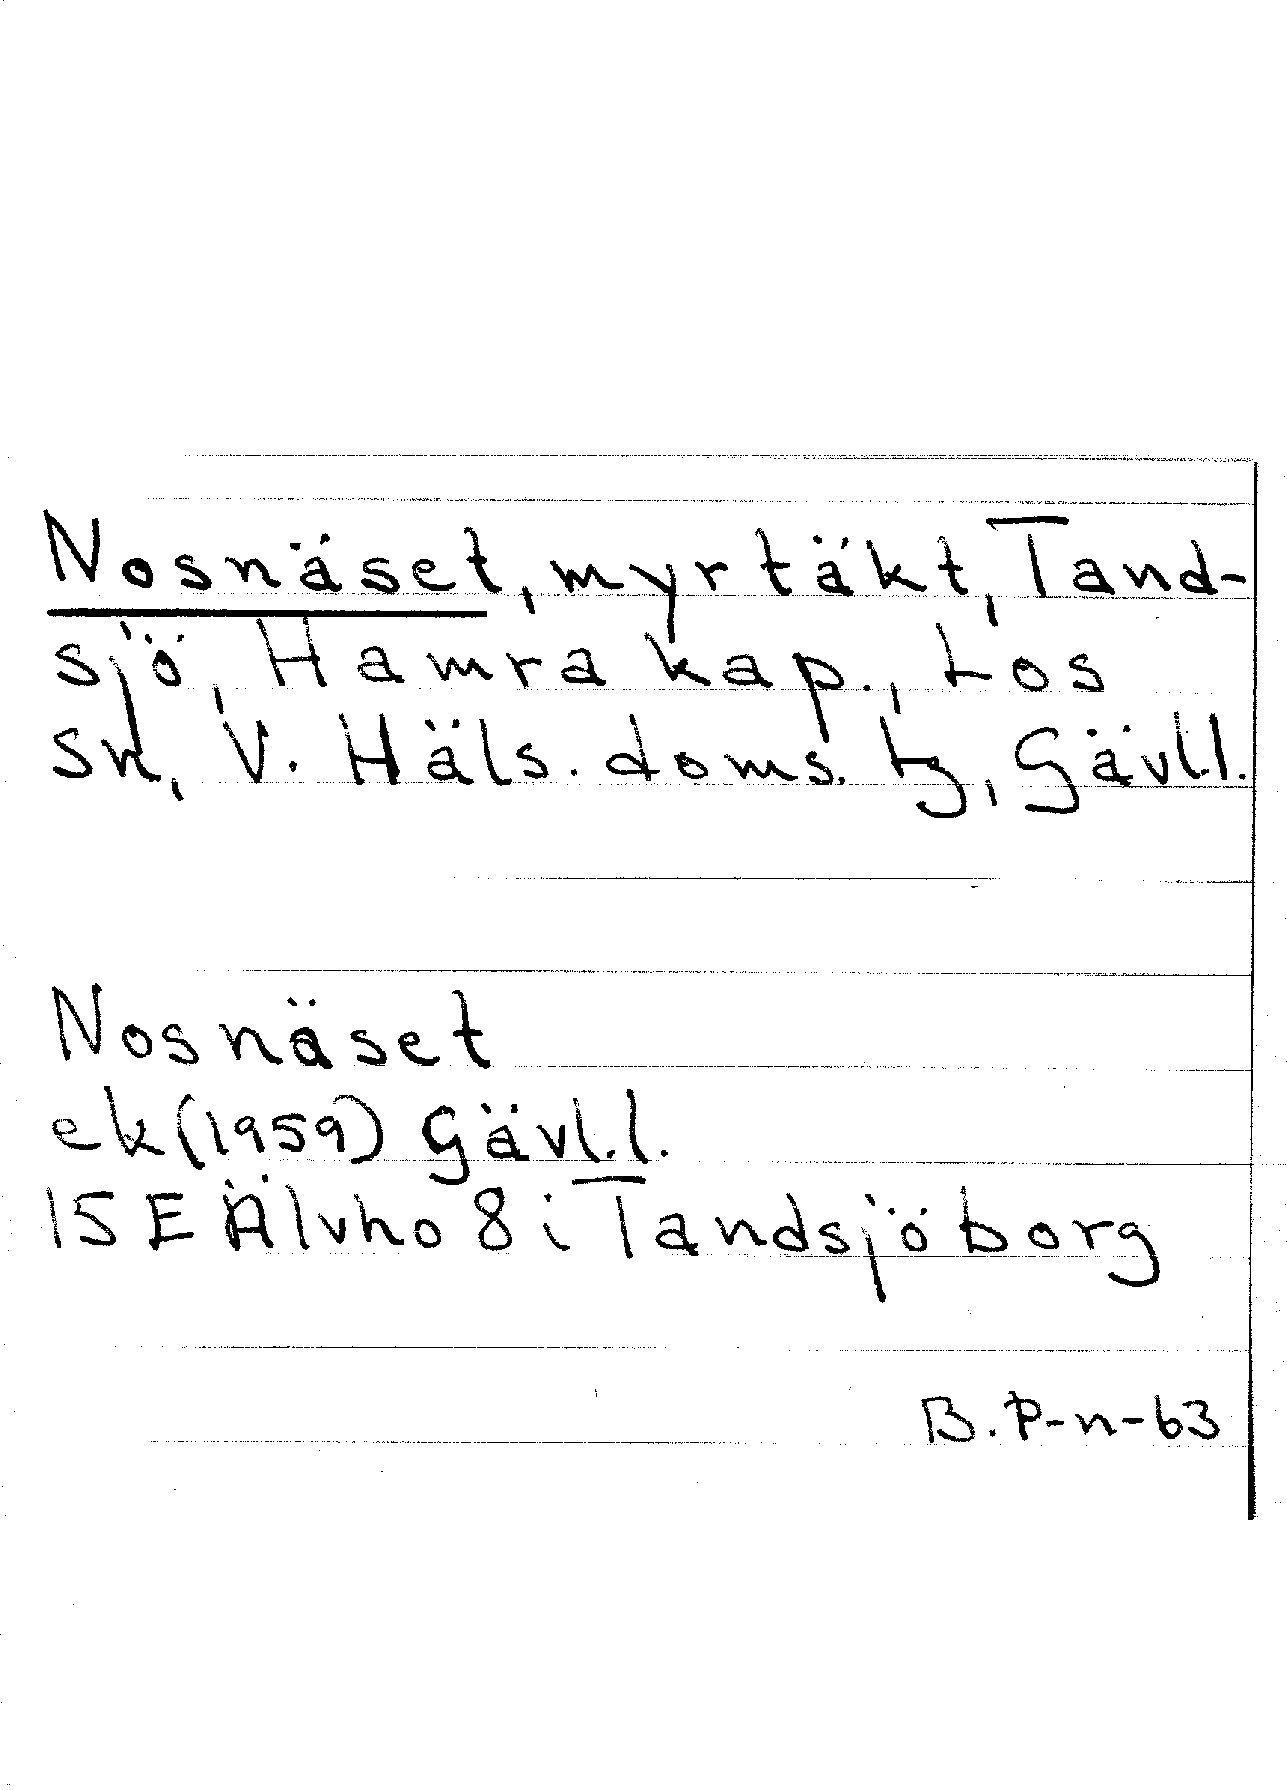 Nosnäset, myrtäkt, Tand-
sjö, Hamra kap., Los
sn, V. Häls. doms. tg, Gävl.l.
Nosnäset
ek (1959) Gävl.l.
15E Älvho 8i Tandsjöborg
B. P-n-63